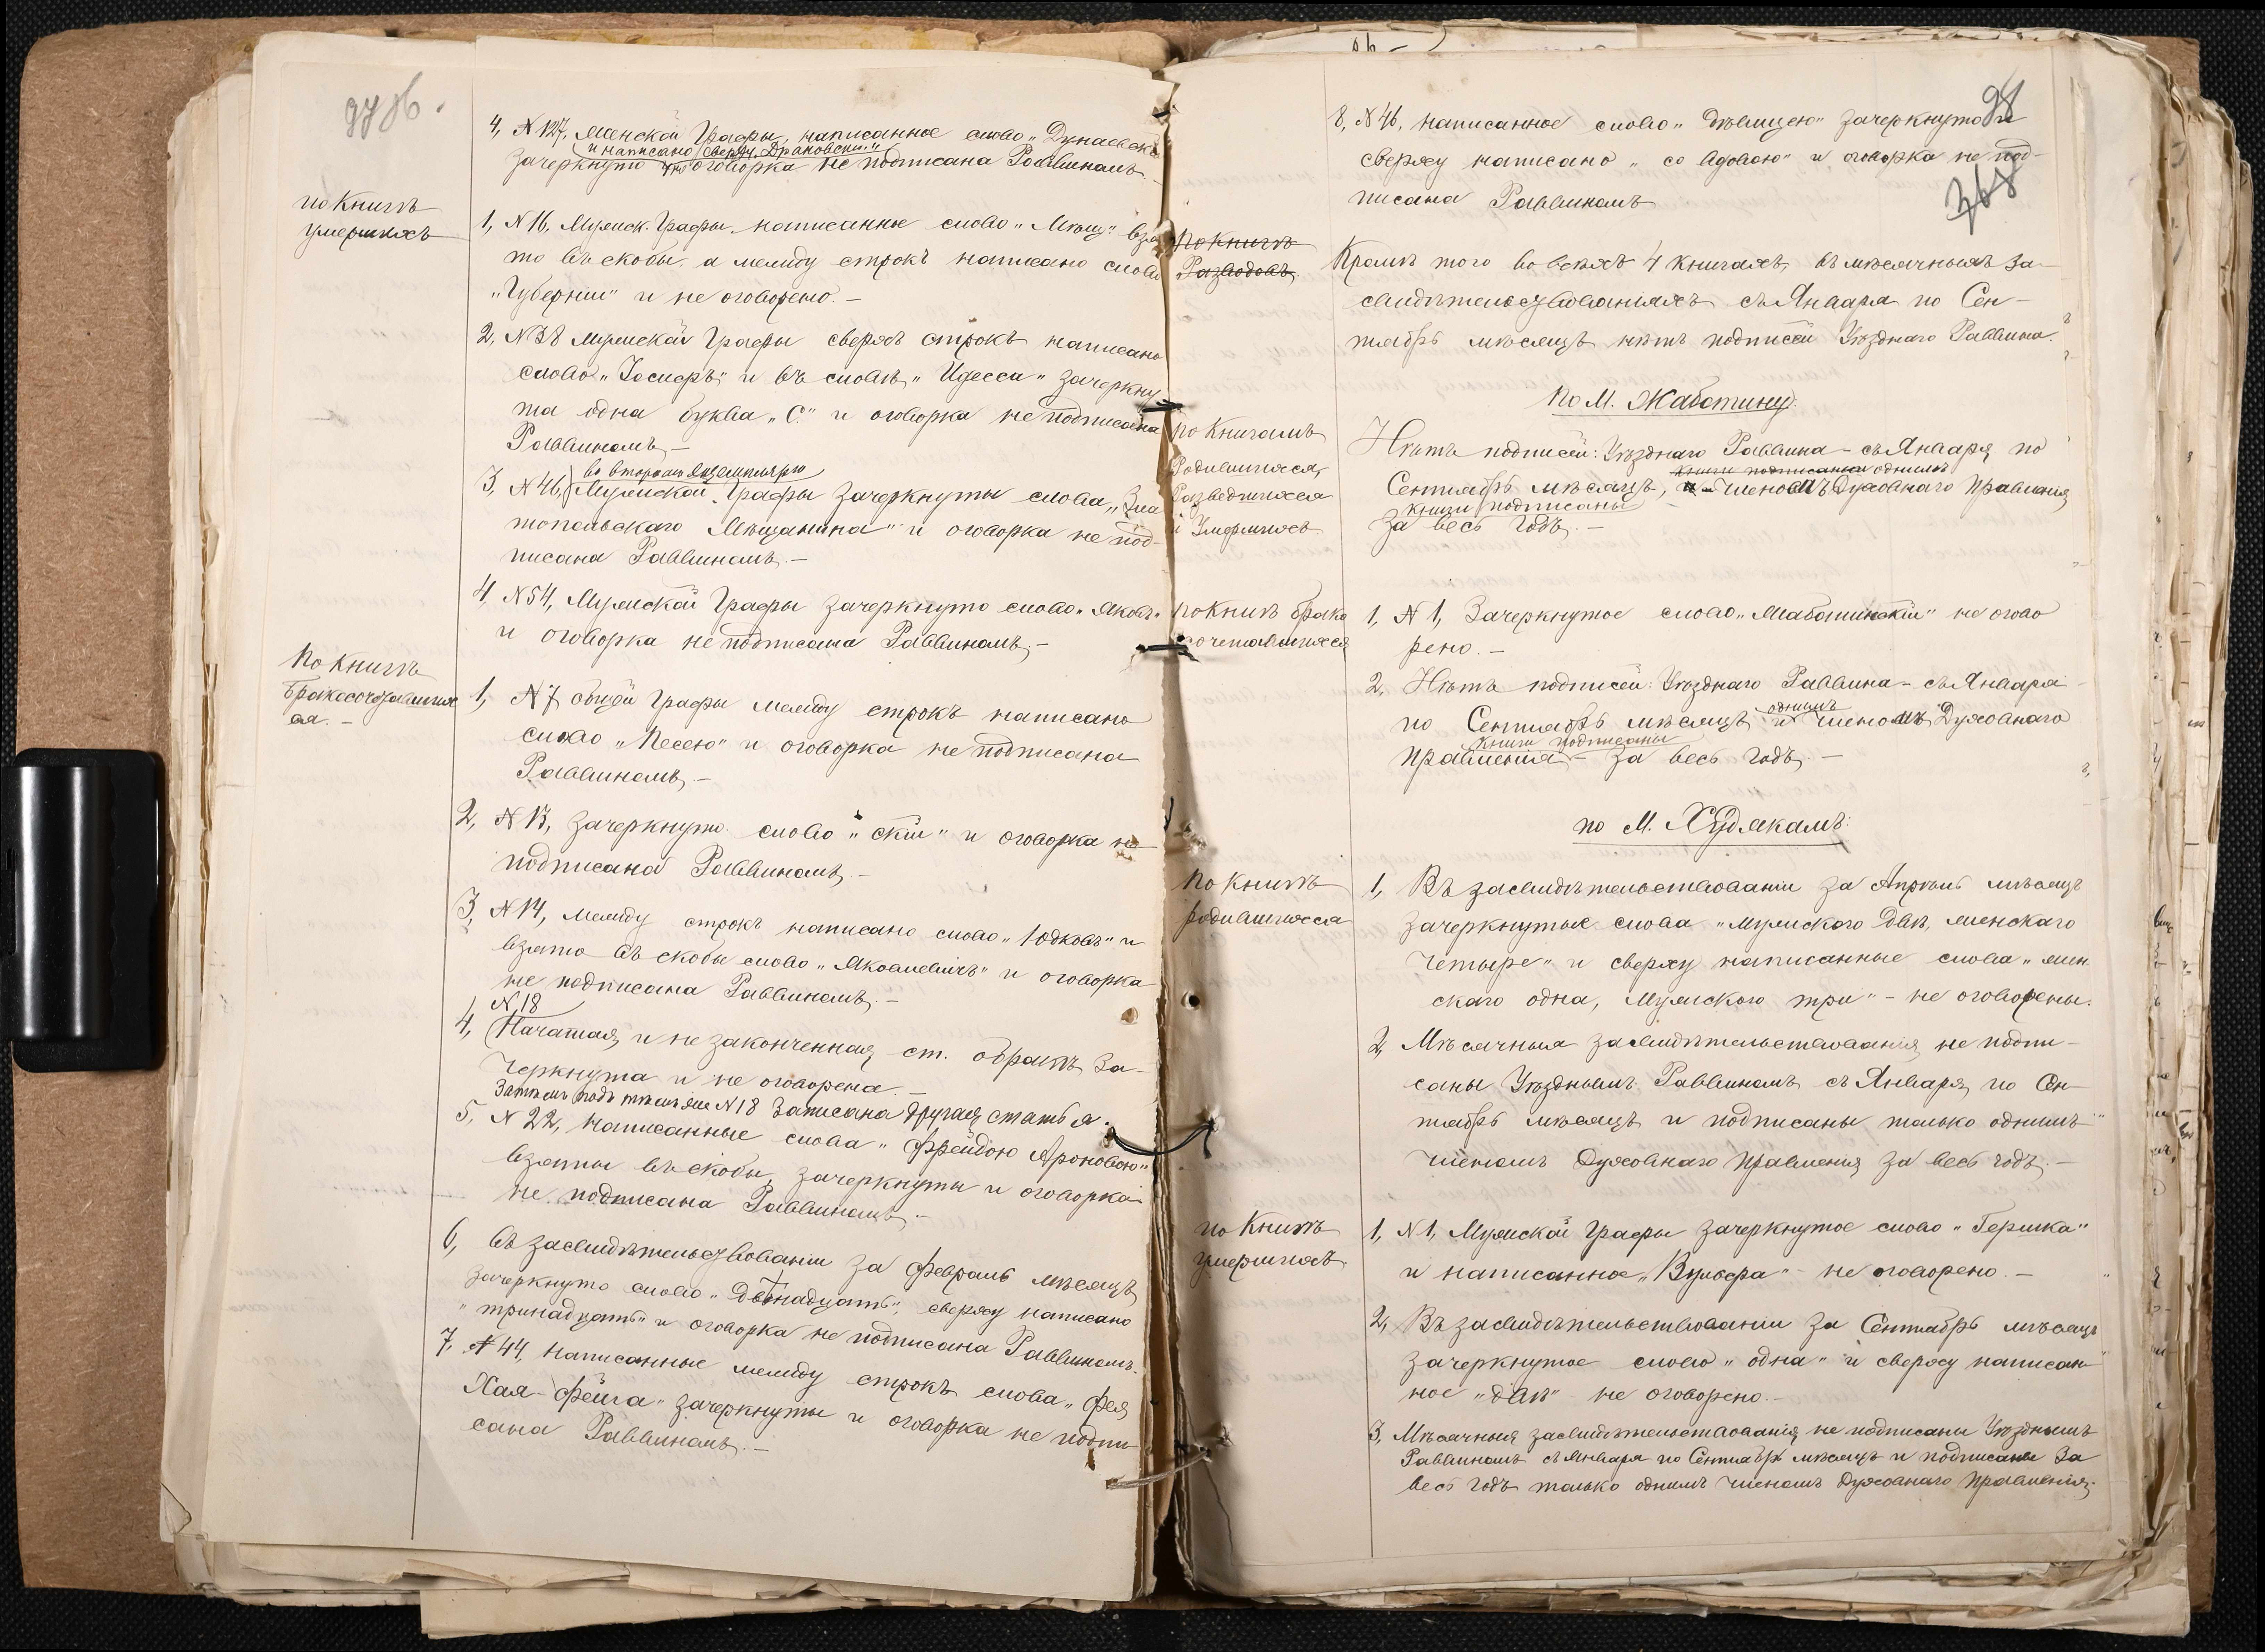 97 об.
4, N 127, Женской Графы, написанное слово „Дунаевск
и написано сверху „Драновски"
зачеркнуто и оговорка не подписана Раввиномъ.
по Книгѣ
умершихъ
1, N 16, Мужск. Графы написанное слово „Мѣщ" взя
то въ скобы, а между строкъ написано слово
„Губерніи" и не оговорено. —
2, N 38 мужской Графы сверхъ строкъ написано
слово „Іосифъ" и въ словѣ „Идесса" зачеркну
та одна буква „С" и оговорка не подписана
Раввиномъ. —
во второмъ экземплярѣ
3, N 46, Мужской Графы зачеркнуты слова „Зла
топольскаго Мѣщанина" и оговорка не под-
писана Раввиномъ. —
4, N 54, Мужской Графы зачеркнуто слово „Яковъ"
и оговорка не подписана Раввиномъ. —
По Книгѣ
бракосочетавших
ся. —
1, N 7 общей Графы между строкъ написано
слово „Песею" и оговорка не подписана
Раввиномъ. —
2, N 13, зачеркнуто слово „скій" и оговорка не
подписана Раввиномъ. —
3, N 14, между строкъ написано слово „Юдковъ" и
взято въ скобы слово „Яковлевичъ" и оговорка
не подписана Раввиномъ. —
N 18
4, Начатая, и не законченная, ст. о бракѣ за-
черкнута и не оговорена. —
Затѣмъ подъ тѣмъ же N 18 записана другая статья.
5, N 22, написанные слова „Фрейдою Ароновою"
взяты въ скобы, зачеркнуты и оговорка
не подписана Раввиномъ. —
6, Въ засвидѣтельствованіи за Февраль мѣсяцъ
зачеркнуто слово „двѣнадцать", сверху написано
„тринадцать" и оговорка не подписана Раввиномъ.
7, N 44, написанные между строкъ слова „Фея
Хая-Фейга" зачеркнуты и оговорка не подпи
сана Раввиномъ. —
98
368
8, N 46, написанное слово „дѣвицею" зачеркнуто и
сверху написано „со вдовою" и оговорка не под-
писана Раввиномъ
по Книгѣ
Разводовъ
Кромѣ того во всѣхъ 4 книгахъ, въ мѣсячныхъ за-
свидѣтельствованіяхъ съ Января по Сен-
тябрь мѣсяцъ нѣтъ подписей Уѣзднаго Раввина.
По М. Жаботину.
по Книгамъ
Родившихся,
Разведшихся
и Умершихъ
Нѣтъ подписей: Уѣзднаго Раввина – съ Января по
книги подписаны однимъ
Сентябрь мѣсяцъ, и – Членомъ Духовнаго Правленія
книги подписаны
за весь годъ. —
по Книгѣ брако
сочетавшихся
1, N 1, Зачеркнутое слово „Жаботинскій" не огово
рено. —
2, Нѣтъ подписей: Уѣзднаго Раввина – съ Января
однимъ
по Сентябрь мѣсяцъ и Членомъ Духовнаго
книги подписаны
Правленія – за весь годъ. —
по М. Худякамъ:
По Книгѣ
родившихся
1, Въ засвидѣтельствованіи за Апрѣль мѣсяцъ
зачеркнутые слова „мужского двѣ, женскаго
четыре" и сверху написанные слова „жен
скаго одна, мужского три" – не оговорены.
2, Мѣсячныя засвидѣтельствованія не подпи-
саны Уѣзднымъ Раввиномъ съ Января по Сен
тябрь мѣсяцъ и подписаны только однимъ
членомъ Духовнаго Правленія за весь годъ. —
по Книгѣ
умершихъ
1, N 1, Мужской Графы зачеркнутое слово „Гершка"
и написанное „Вульфа" – не оговорено. —
2, Въ засвидѣтельствованіи за Сентябрь мѣсяцъ
зачеркнутое слово „одна" и сверху написан
ное „двѣ" не оговорено. —
3, Мѣсячныя засвидѣтельствованія не подписаны Уѣзднымъ
Раввиномъ съ Января по Сентябрь мѣсяцъ и подписаны за
весь годъ только однимъ членомъ Духовнаго Правленія.